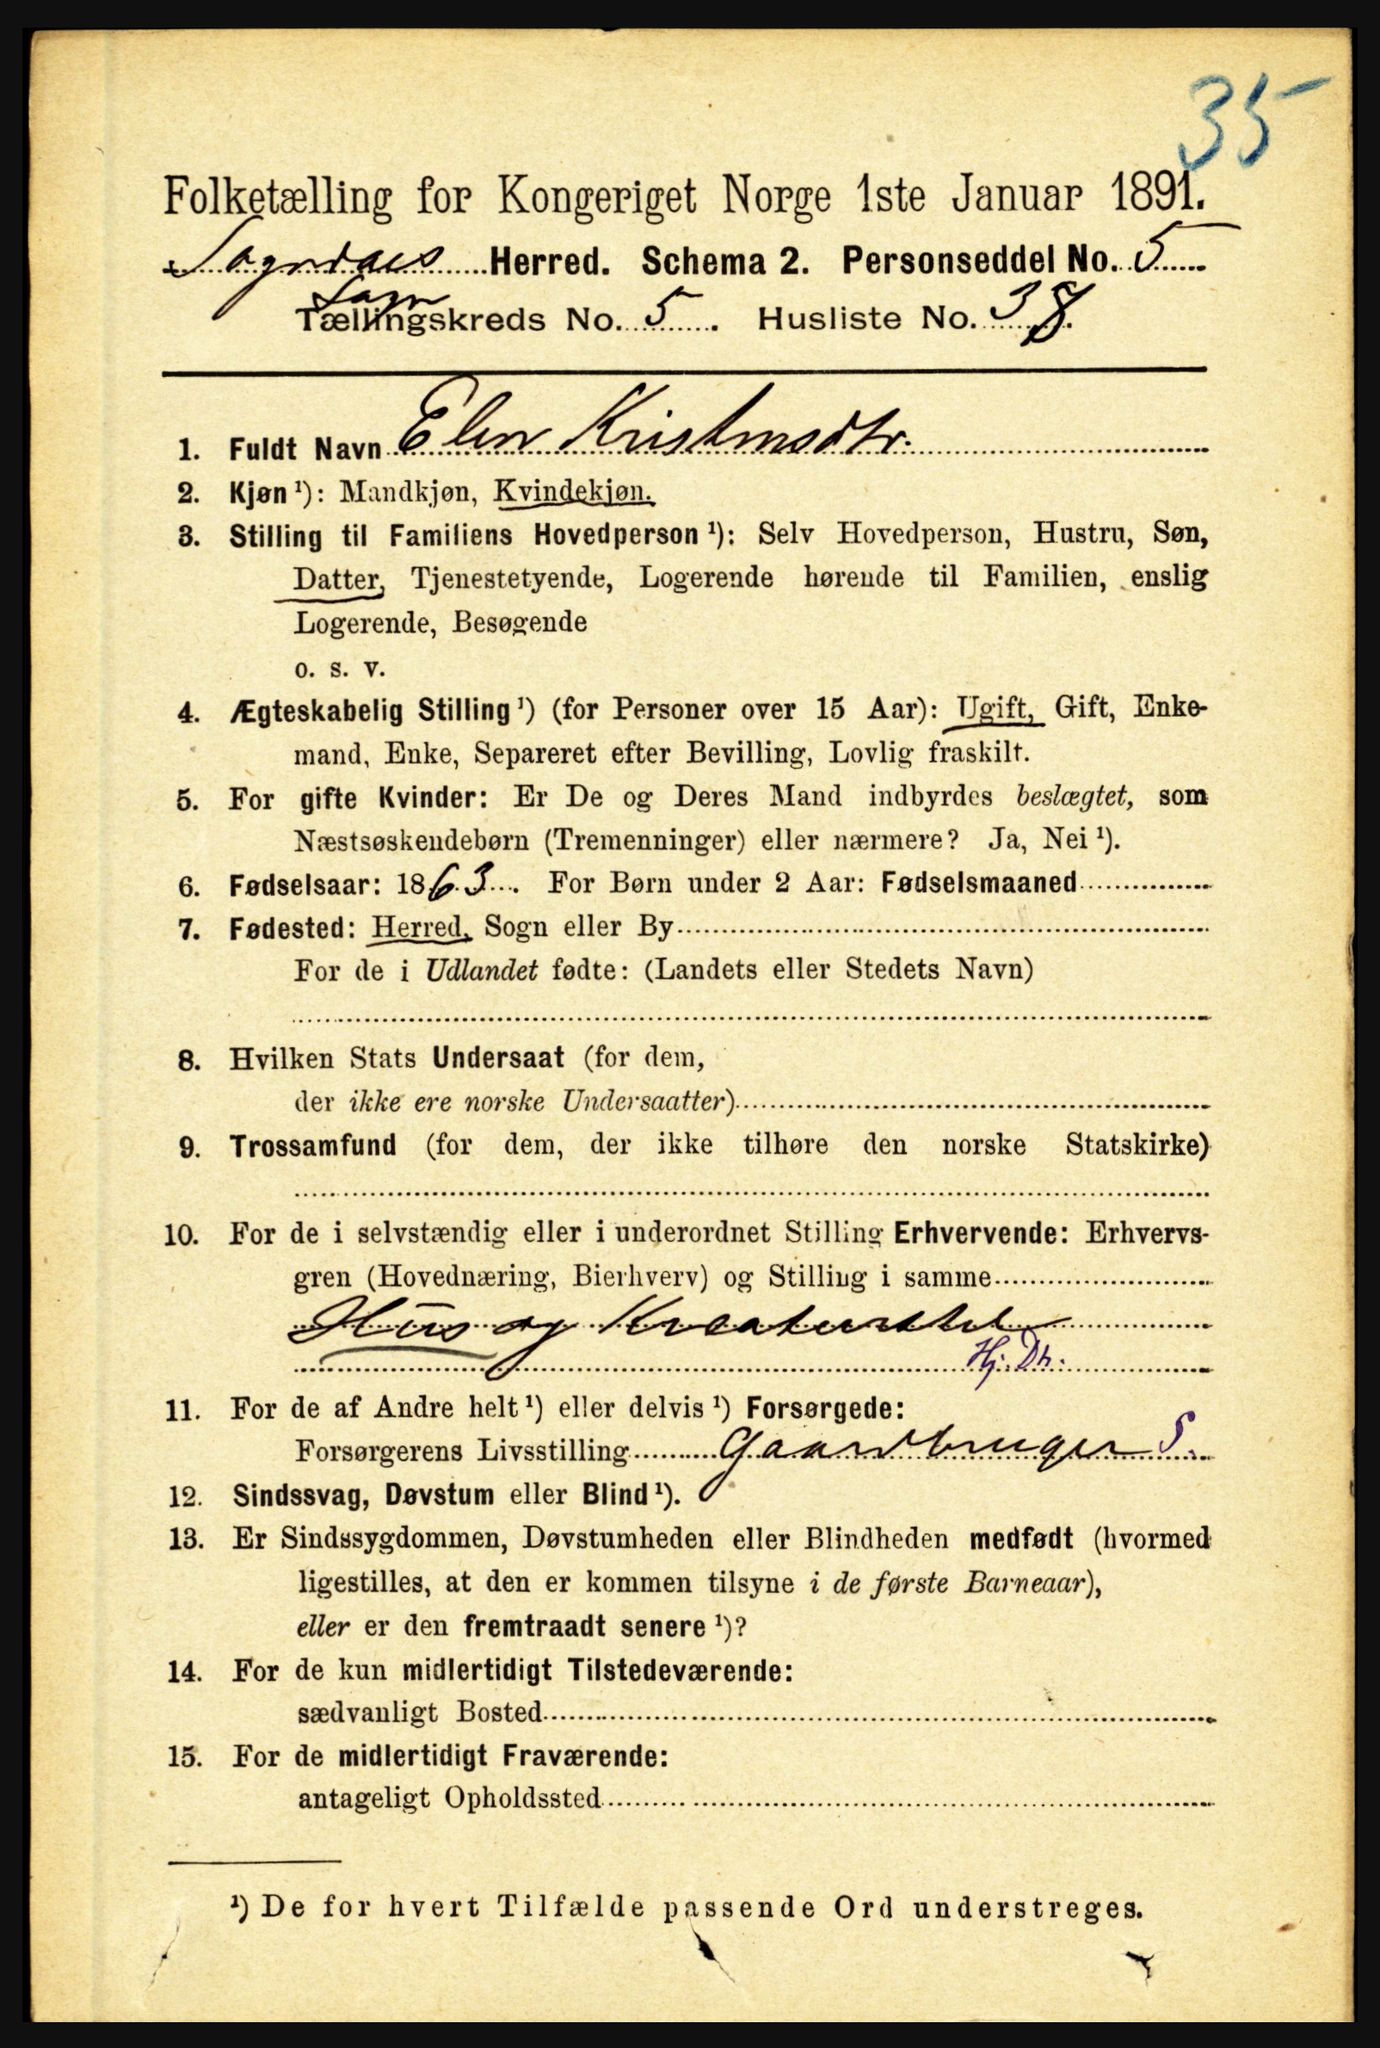 35
Folketælling for Kongeriget Norge 1ste Januar 1891.
Sogndals Herred. Schema 2. Personseddel No. 5
Tællingskreds No. 5. Husliste No. 38.
1. Fuldt Navn Elen Kristensdtr.
2. Kjøn ¹): Mandkjøn, Kvindekjøn.
3. Stilling til Familiens Hovedperson ¹): Selv Hovedperson, Hustru, Søn,
Datter, Tjenestetyende, Logerende hørende til Familien, enslig
Logerende, Besøgende
o. s. v.
4. Ægteskabelig Stilling ¹) (for Personer over 15 Aar): Ugift, Gift, Enke-
mand, Enke, Separeret efter Bevilling, Lovlig fraskilt.
5. For gifte Kvinder: Er De og Deres Mand indbyrdes beslægtet, som
Næstsøskendebørn (Tremenninger) eller nærmere? Ja, Nei ¹).
6. Fødselsaar: 1863. For Børn under 2 Aar: Fødselsmaaned
7. Fødested: Herred, Sogn eller By
For de i Udlandet fødte: (Landets eller Stedets Navn)
8. Hvilken Stats Undersaat (for dem,
der ikke ere norske Undersaatter)
9. Trossamfund (for dem, der ikke tilhøre den norske Statskirke)
10. For de i selvstændig eller i underordnet Stilling Erhvervende: Erhvervs-
gren (Hovednæring, Bierhverv) og Stilling i samme
Hus og Kreaturstel
Hj. Dt.
11. For de af Andre helt ¹) eller delvis ¹) Forsørgede:
Forsørgerens Livsstilling Gaardbruger S.
12. Sindssvag, Døvstum eller Blind ¹).
13. Er Sindssygdommen, Døvstumheden eller Blindheden medfødt (hvormed
ligestilles, at den er kommen tilsyne i de første Barneaar),
eller er den fremtraadt senere ¹)?
14. For de kun midlertidigt Tilstedeværende:
sædvanligt Bosted
15. For de midlertidigt Fraværende:
antageligt Opholdssted
¹) De for hvert Tilfælde passende Ord understreges.